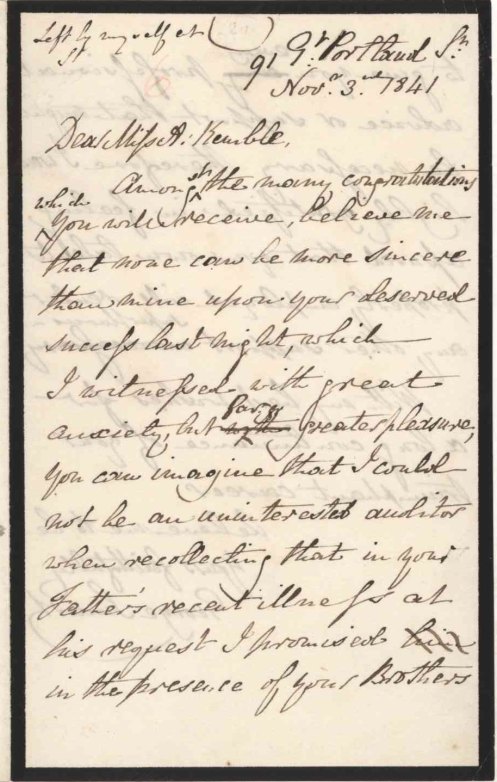 Left by myself at
91 Gt. Portland St.
Novr. 3rd. 1841
Dear Miss A. Kemble,
Amongst the many congratulations
which
You will receive, believe me
that none can be more sincere
than mine upon your deserved
success last night, which
I witnessed with great
anxiety, but far greater pleasure,
you can imagine that I could
not be an uninterested auditor
when recollecting that in your
Father's recent illness at
his request I promised him
in the presence of your Brothers